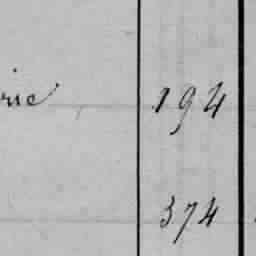 rie 194
374